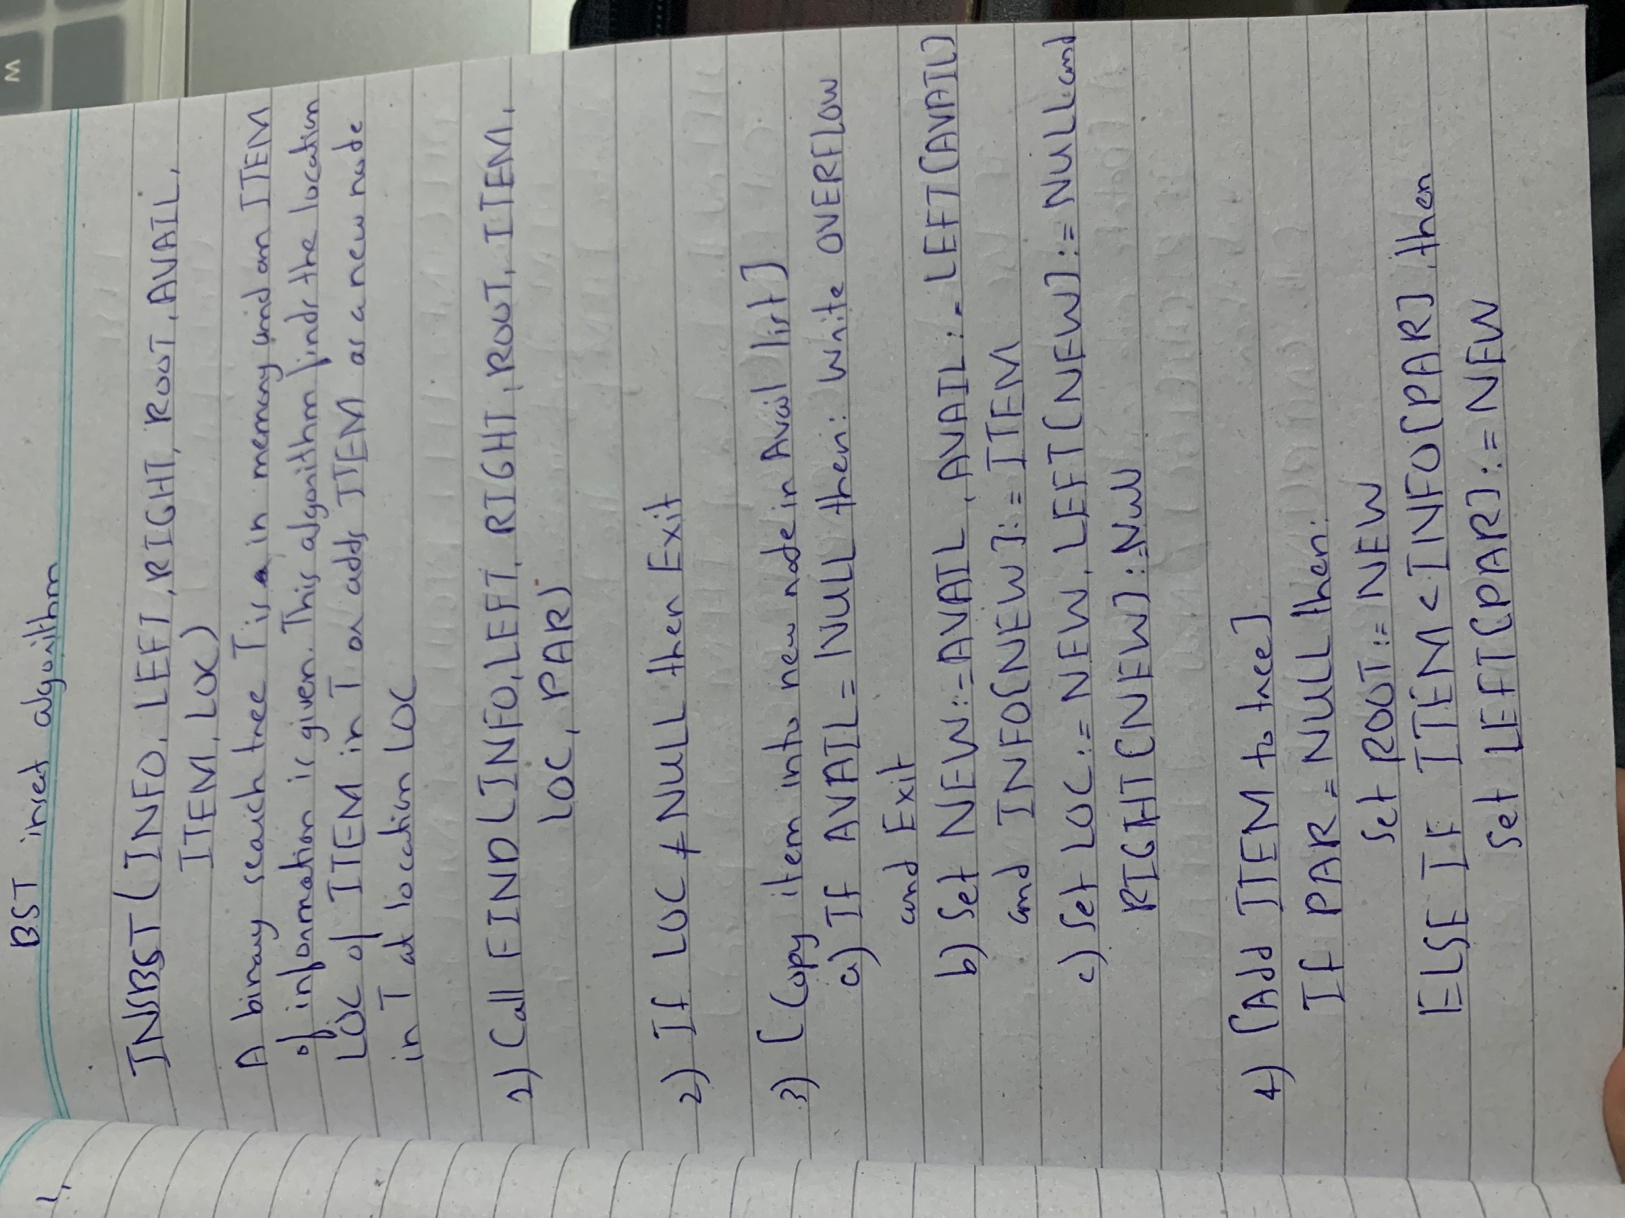 BST insert algorithm
INSBST(INFO, LEFT, RIGHT, ROOT, AVAIL,
ITEM, LOC)
A binary search tree T is in memory and an ITEM
of information is given. This algorithm finds the location
LOC of ITEM in T or adds ITEM as a new node
in T at location LOC
1) Call FIND(INFO, LEFT, RIGHT, ROOT, ITEM,
LOC, PAR)
2) If LOC ≠ NULL then Exit
3) [Copy item into new node in Avail list]
a) If AVAIL = NULL then: Write OVERFLOW
and Exit
b) Set NEW:=AVAIL, AVAIL:=LEFT[AVAIL]
and INFO[NEW]:=ITEM
c) Set LOC:=NEW, LEFT[NEW]:=NULL and
RIGHT[NEW]:=Null
4) [Add ITEM to tree]
If PAR=NULL then:
Set ROOT:=NEW
ELSE IF ITEM<INFO[PAR], then
Set LEFT[PAR]:=NEW
M